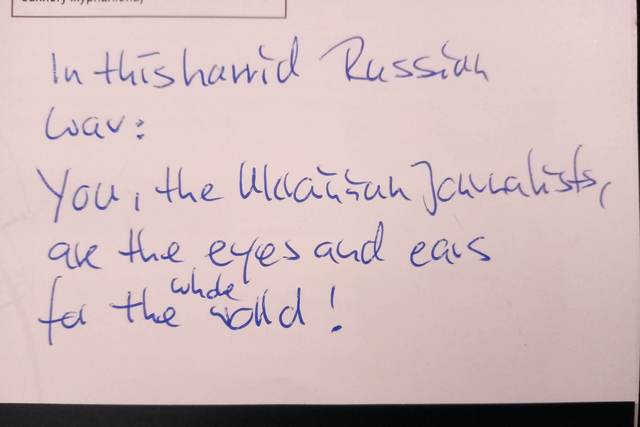 In this horrid Russian
war:
You, the Ukrainian Journalists,
are the eyes and ears
for the whole world!